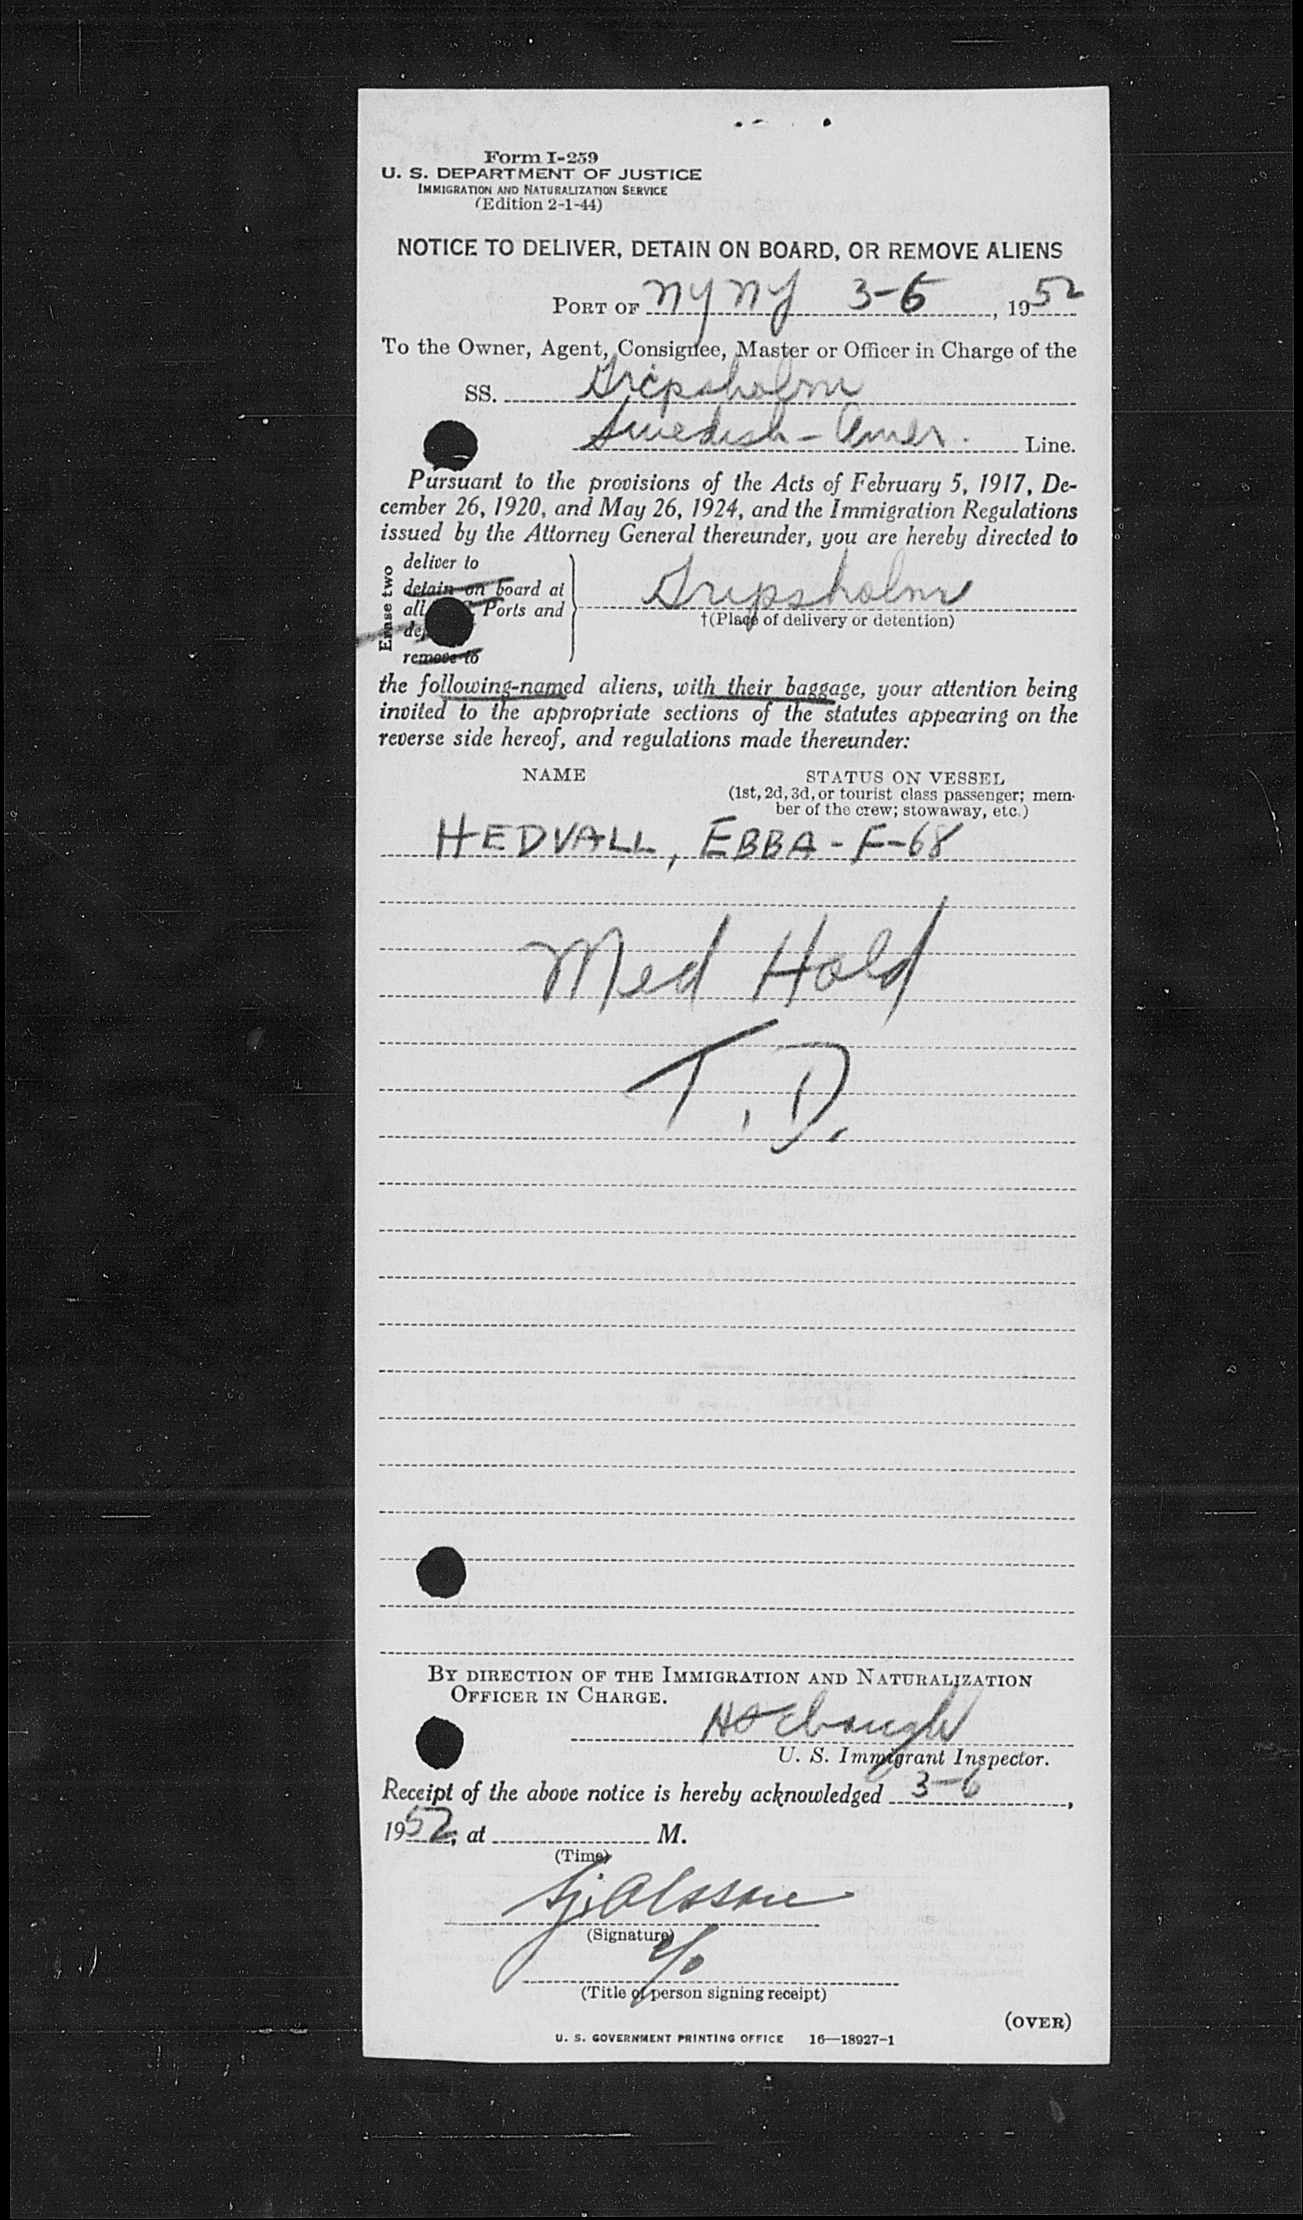 Form I-259
U. S. DEPARTMENT OF JUSTICE
IMMIGRATION AND NATURALIZATION SERVICE
(Edition 2-1-44)
NOTICE TO DELIVER, DETAIN ON BOARD, OR REMOVE ALIENS
PORT OF NY NY 3-6, 1952
To the Owner, Agent, Consignee, Master or Officer in Charge of the
SS. Gripsholm
Swedish-Amer. Line.
Pursuant to the provisions of the Acts of February 5, 1917, De-
cember 26, 1920, and May 26, 1924, and the Immigration Regulations
issued by the Attorney General thereunder, you are hereby directed to
Erase two
deliver to
detain on board at
all Ports and
remove to
Gripsholm
†(Place of delivery or detention)
the following-named aliens, with their baggage, your attention being
invited to the appropriate sections of the statutes appearing on the
reverse side hereof, and regulations made thereunder:
NAME STATUS ON VESSEL
(1st, 2d, 3d, or tourist class passenger; mem-
ber of the crew; stowaway, etc.)
HEDVALL, EBBA - F-68
Med Hold
T. D.
BY DIRECTION OF THE IMMIGRATION AND NATURALIZATION
OFFICER IN CHARGE.
U. S. Immigrant Inspector.
Receipt of the above notice is hereby acknowledged 3-6,
1952, at M.
(Time)
Olsson
(Signature)
c/o
(Title of person signing receipt)
(OVER)
U. S. GOVERNMENT PRINTING OFFICE 16—18927-1